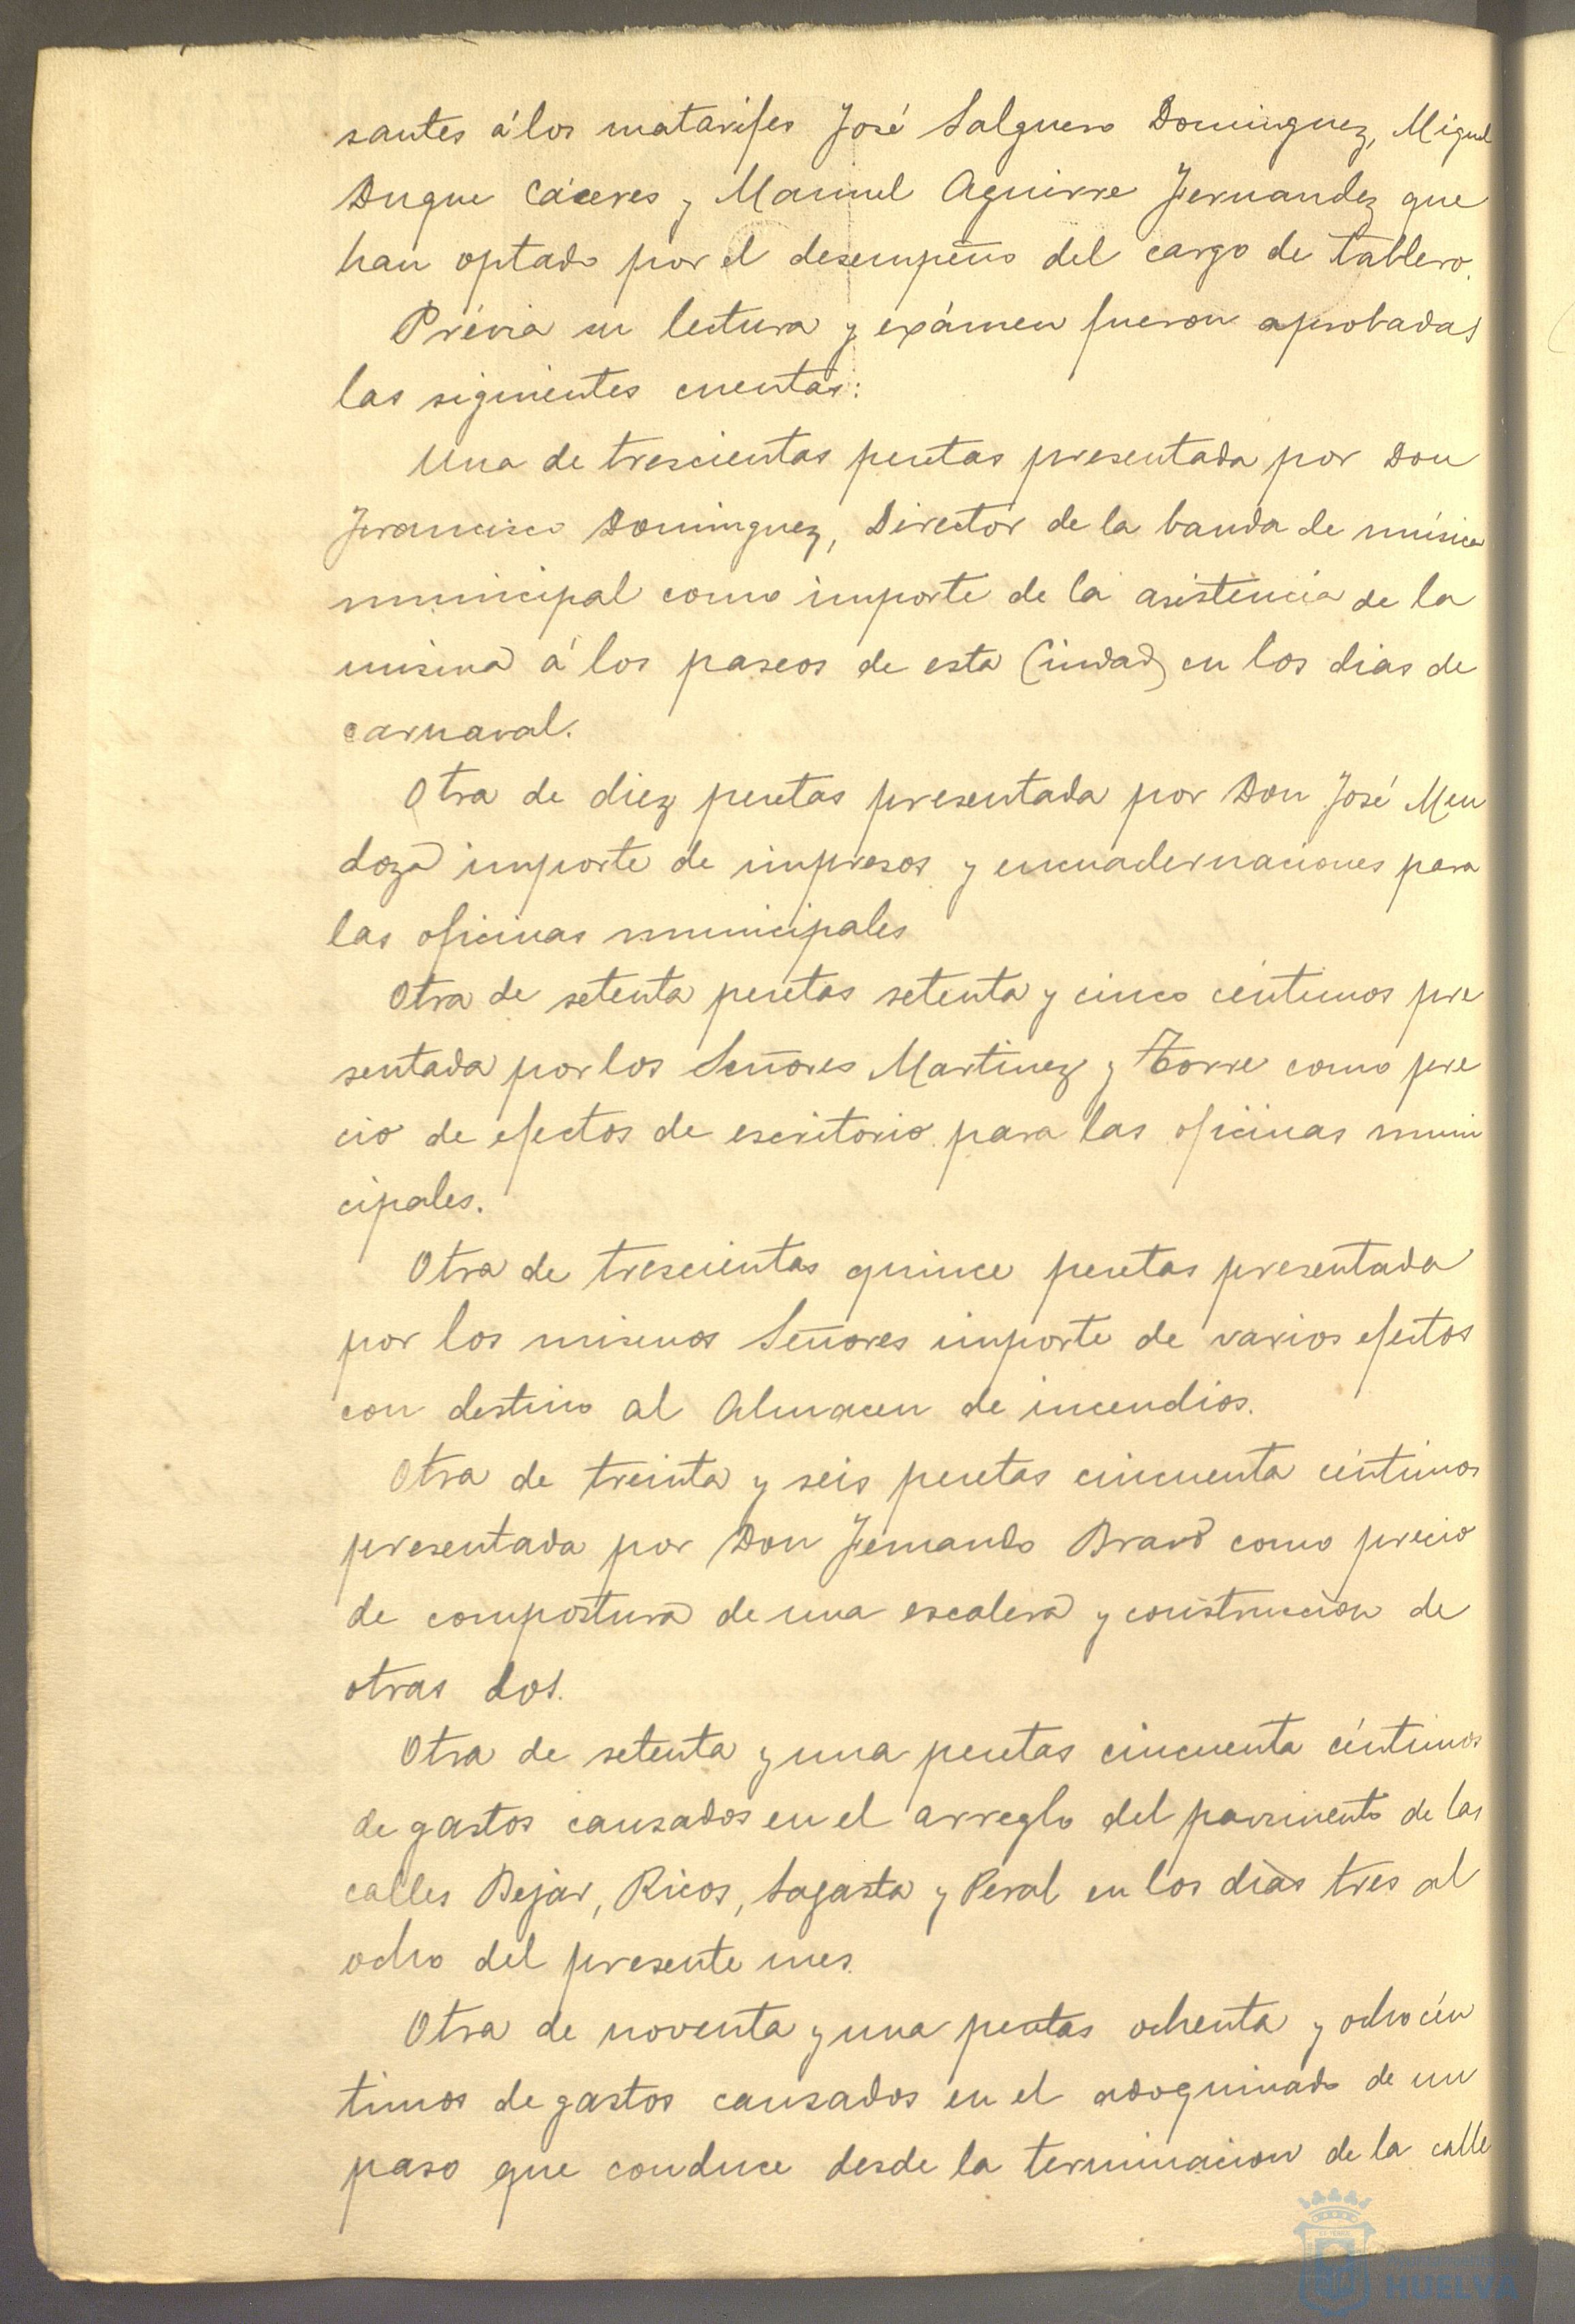 santes á los matarifes José Salguero Dominguez, Miguel
Duque Cáceres y Manuel Aguirre Fernandez que
han optado por el desempeño del cargo de tablero.
Prévia su lectura y exámen fueron aprobadas
las siguientes cuentas:
Una de trescientas pesetas presentada por Don
Francisco Dominguez, Director de la banda de música
municipal como importe de la asistencia de la
misma á los paseos de esta Ciudad en los dias de
carnaval.
Otra de diez pesetas presentada por Don José Men
doza importe de impresos y encuadernaciones para
las oficinas municipales
Otra de setenta pesetas setenta y cinco céntimos pre
sentada por los Señores Martinez y Torre como pre
cio de efectos de escritorio para las oficinas muni
cipales.
Otra de trescientas quince pesetas presentada
por los mismos Señores importe de varios efectos
con destino al Almacen de incendios.
Otra de treinta y seis pesetas cincuenta céntimos
presentada por Don Fernando Bravo como precio
de compostura de una escalera y construccion de
otras dos.
Otra de setenta y una pesetas cincuenta céntimos
de gastos causados en el arreglo del pavimento de las
calles Bejar, Ricos, Sagasta y Peral en los dias tres al
ocho del presente mes.
Otra de noventa y una pesetas ochenta y ocho cén
timos de gastos causados en el adoquinado de un
paso que conduce desde la terminacion de la calle
HUELVA